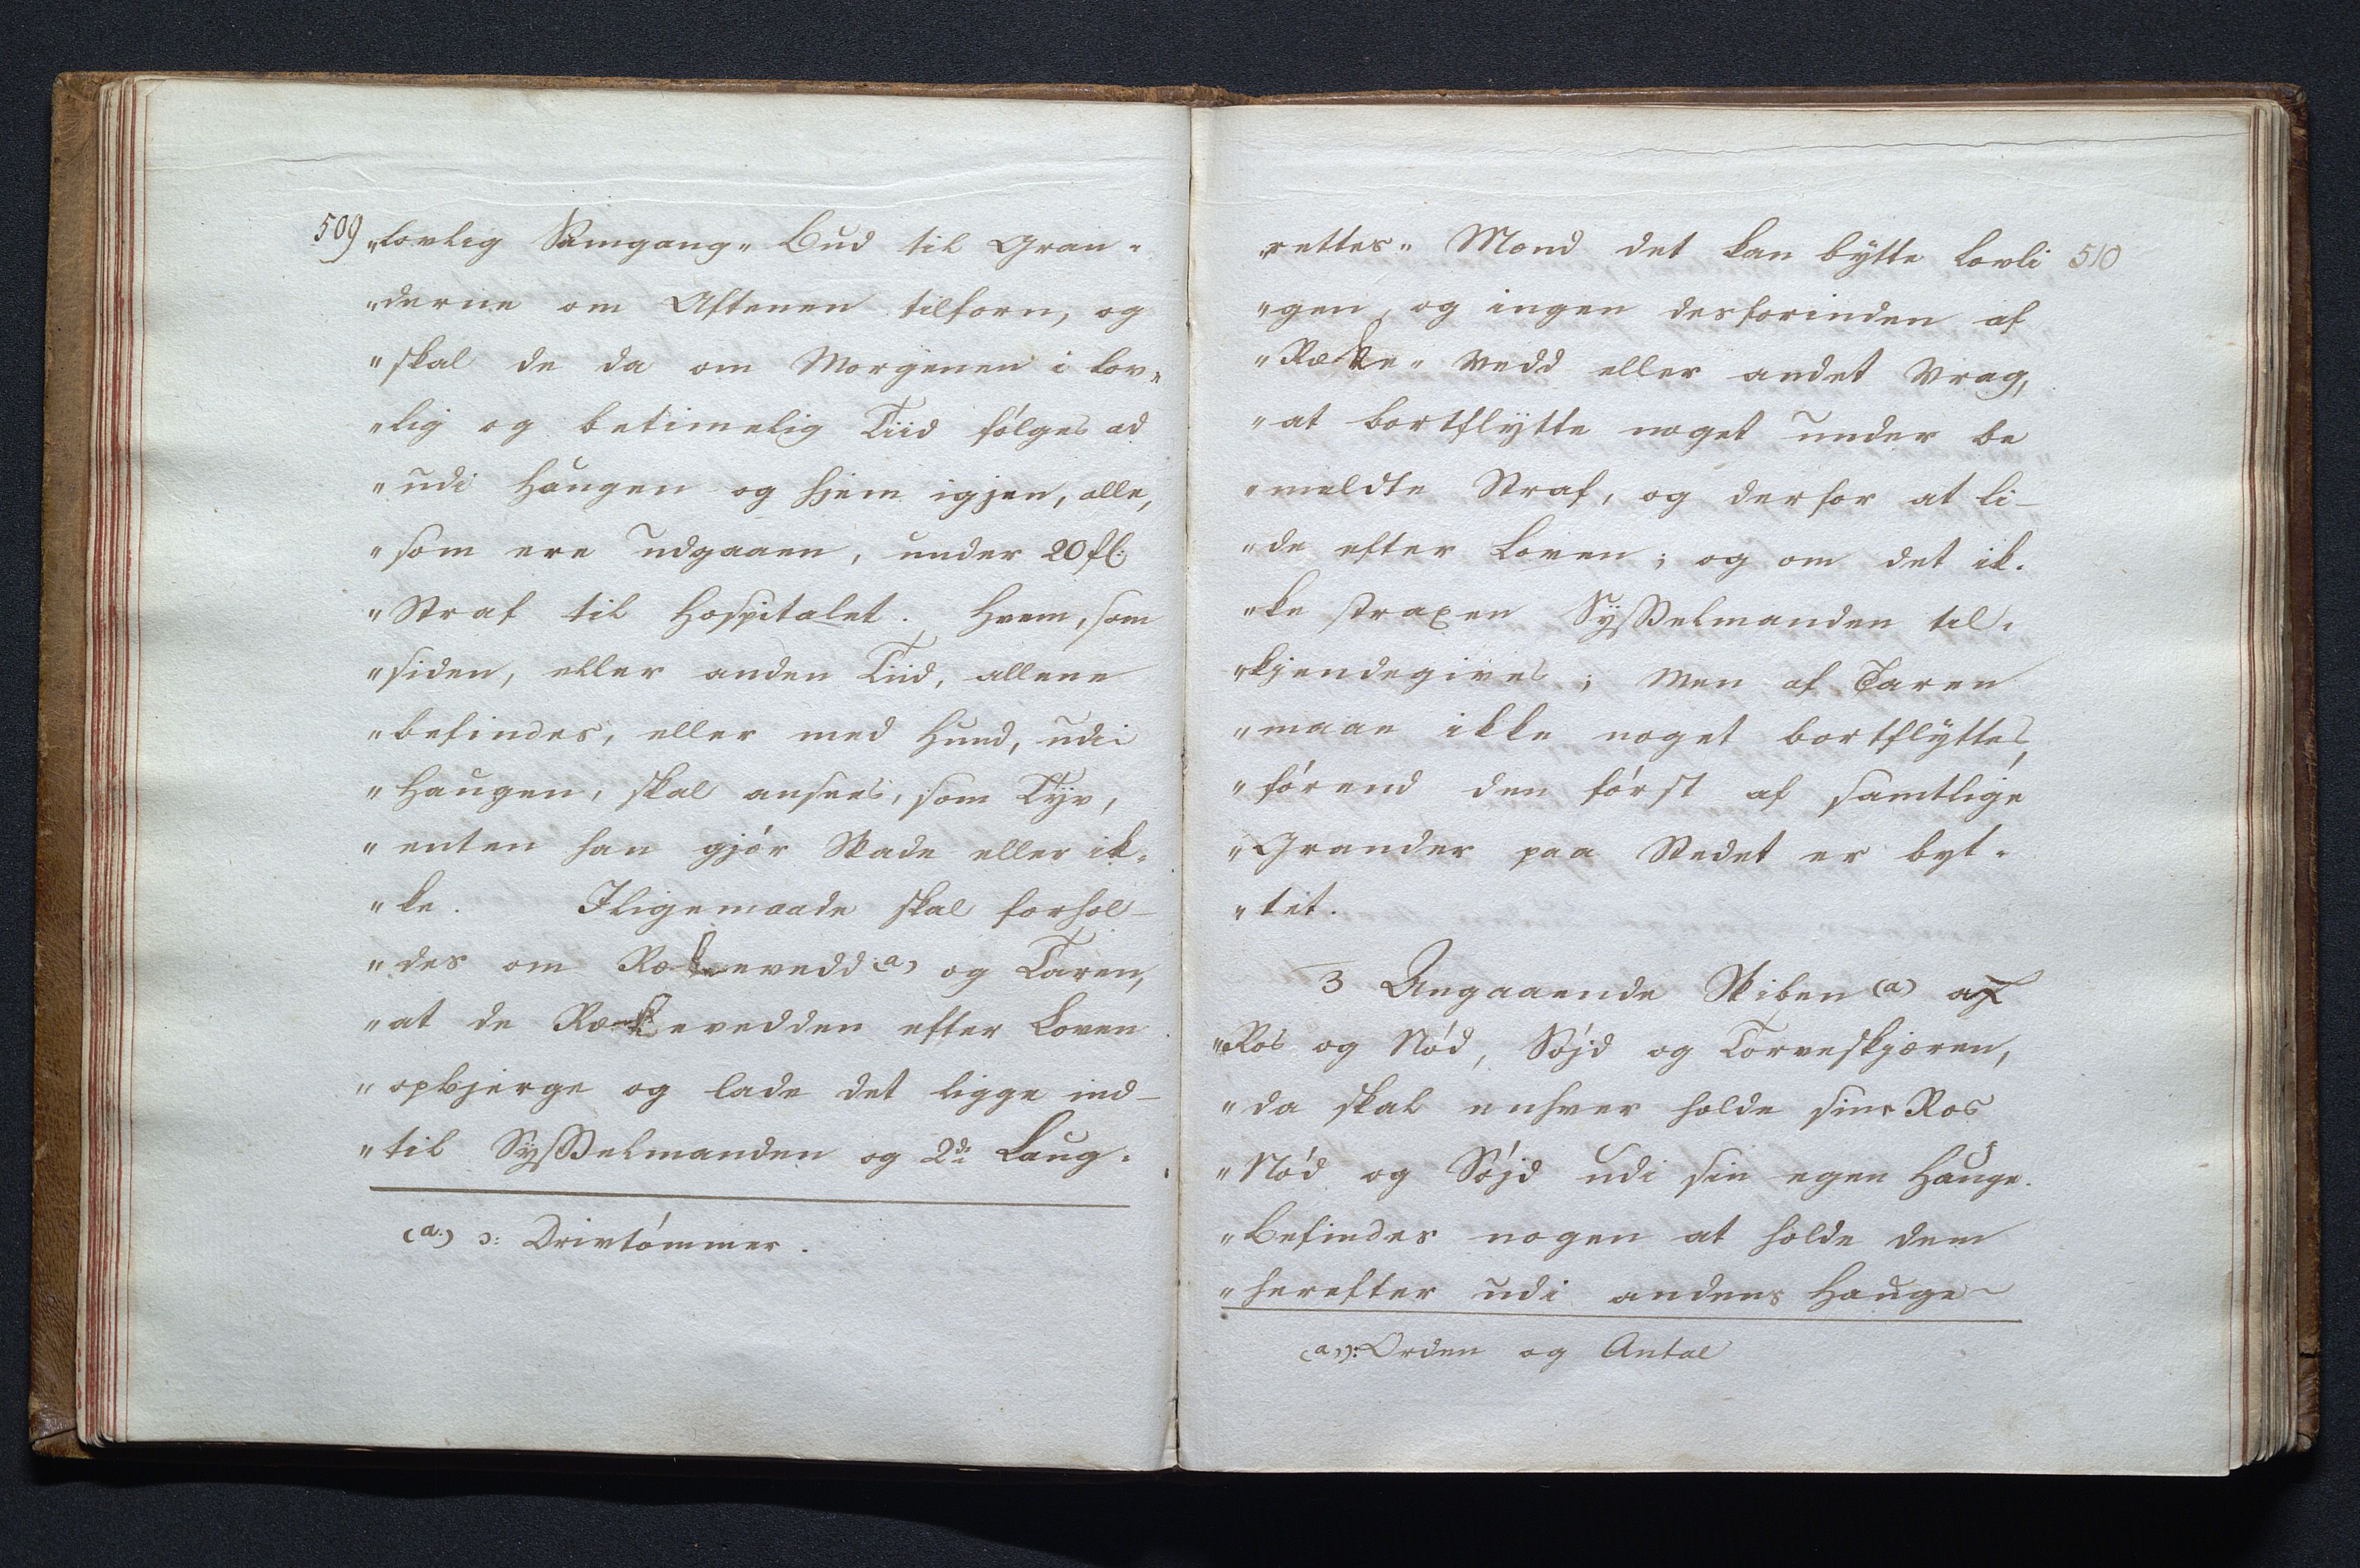 509 „lovlig Samgang" Bud til Gran-
„derne om Aftenen tilforn, og
„skal de da om Morgenen i lov-
„lig og betimelig Tiid følges ad
„udi Haugen og hjem igjen, alle,
„som ere udgaaen, under 20 fl:
„Straf til Hospitalet. Hvem, som
„siden, eller anden Tiid, allene
„befindes, eller med Hund, udi
„Haugen, skal ansees, som Tyv,
„enten han gjør Skade eller ik-
„ke. Iligemaade skal forhol-
„des om Rækevedd (a) og Taren,
„at de Rækevedden efter Loven
„opbjerge og lade det ligge ind-
„til Sysselmanden og 2de Laug-
(a.) ɔ: Drivtømmer.
„rettes" Mænd det kan bytte lovli 510
„gen, og ingen desforinden af
„Ræke" Vedd eller andet Vrag,
„at bortflytte noget under be
„meldte Straf, og derfor at li-
„de efter Loven; og om det ik-
„ke straxen Sysselmanden til-
„kjendegives; Men af Taren
„maae ikke noget bortflyttes,
„førend den først af samtlige
„Grander paa Stedet er byt-
„tet.
3 Angaaende Skiben (a) af
„Ros og Nød, Søjd og Torveskjæren,
„da skal enhver holde sine Ros
„Nød og Søjd udi sin egen Hauge.
„Befindes nogen at holde dem
„herefter udi andens Hauge
(a) ɔ: Orden og Antal